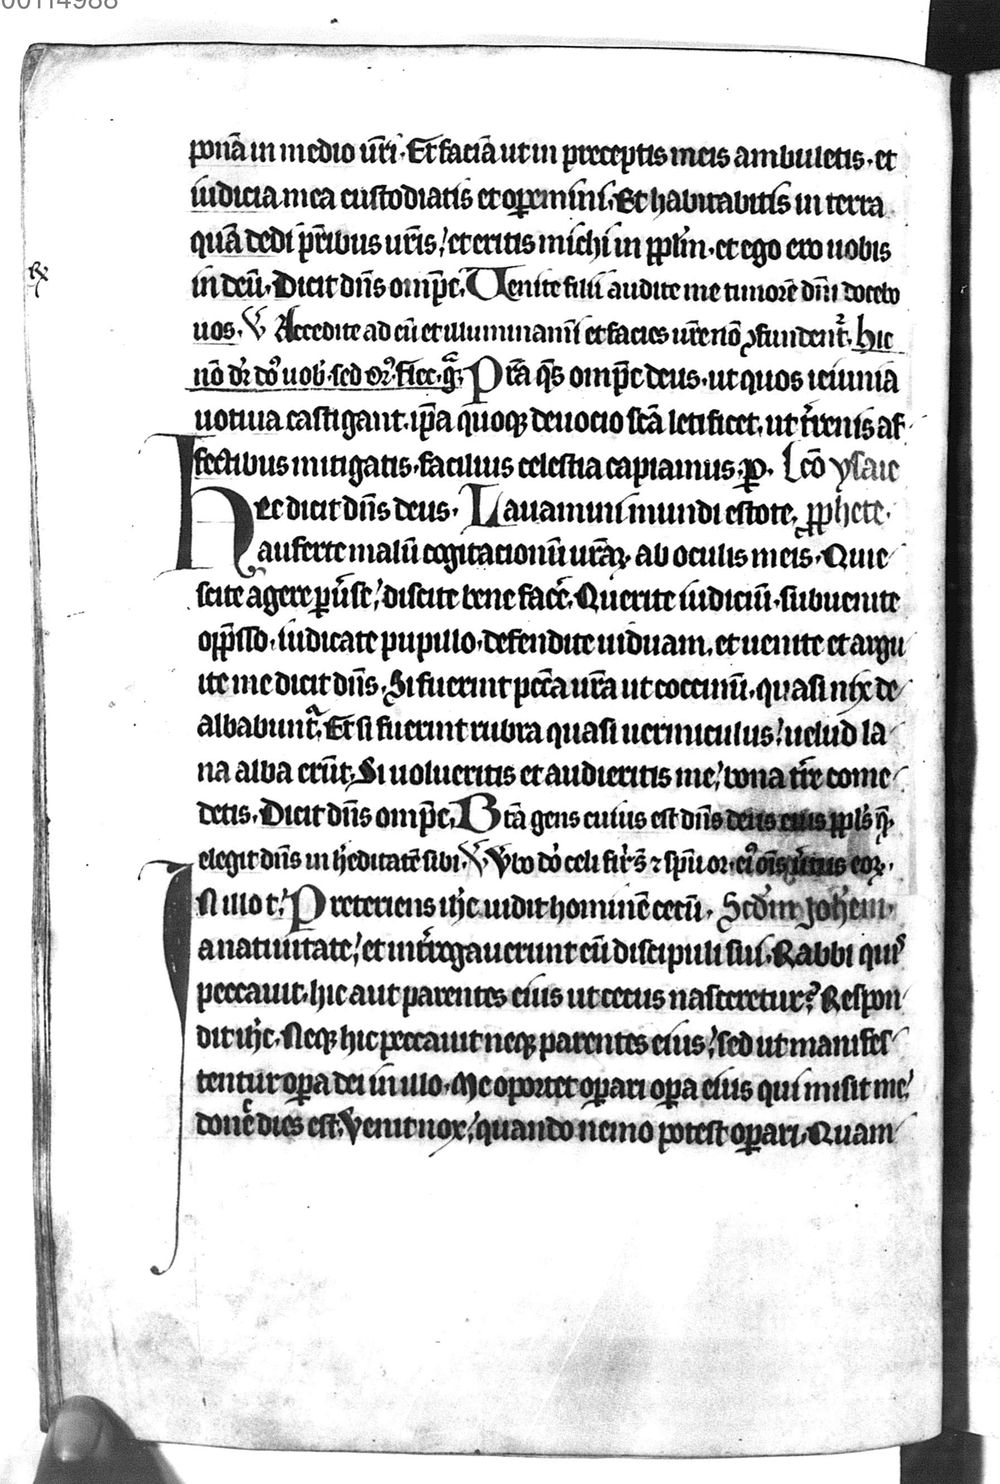 00114988
ponā in medio ūri. Et faciā ut in preceptis meis ambuletis. et
iudicia mea custodiatis et opemini. Et habitabitis in terra
quā dedi prībus uris. et eritis michi in pplm. et ego ero uobis
in deū. Dicit dn̄s omp̄c. Uenite filii audite me timorē dn̄i docebo
uos. V Accedite ad eū et illuminamī et facies ure nō ꝯfundent᷑. hic
nō dr̄ do uob. sed or. flec. g̅. P rā qs omp̄c deus. ut quos ieiunia
uotiua castigant. ip̄a quoqꝫ deuocio scā letificet. ut trenis af
fectibus mitigatis. facilius celestia capiamus. p. Lcō ysaie
Hec dicit dn̄s deus. Lauamini mundi estote. pphete.
auferte malū cogitacionū urāꝝ ab oculis meis. Quie
scite agere puse. discite bene facē. Querite iudiciū. subuenite
opp̄sso. iudicate pupillo. defendite uiduam. et uenite et argu
ite me dicit dn̄s. Si fuerint pccā urā ut coccinū. quasi nix de
albabunt᷑. Et si fuerint rubra quasi uermiculus. uelud la
na alba erūt. Si uolueritis et audieritis me. bona tr̄e come
detis. Dicit dn̄s omp̄c. Btā gens cuius est dn̄s deus eius ppls q̄
elegit dn̄s in heditatē sibi. V Vbo dō celi fir. s ⁊ spū or. ei oīs uirtus eoꝝ.
IN illo t. Preteriens ihc uidit hominē cecū. Scdm Johem.
a natiuitate. et introgauerunt eū discipuli sui. Rabbi quis
peccauit. hic aut parentes eius ut cecus nasceretur? Respon
dit ihc. Neqꝫ hic peccauit neqꝫ parentes eius. sed ut manifes
tentur opa dei in illo. Me oportet opari opa eius qui misit me.
donec dies est. Venit nox. quando nemo potest opari. Quam